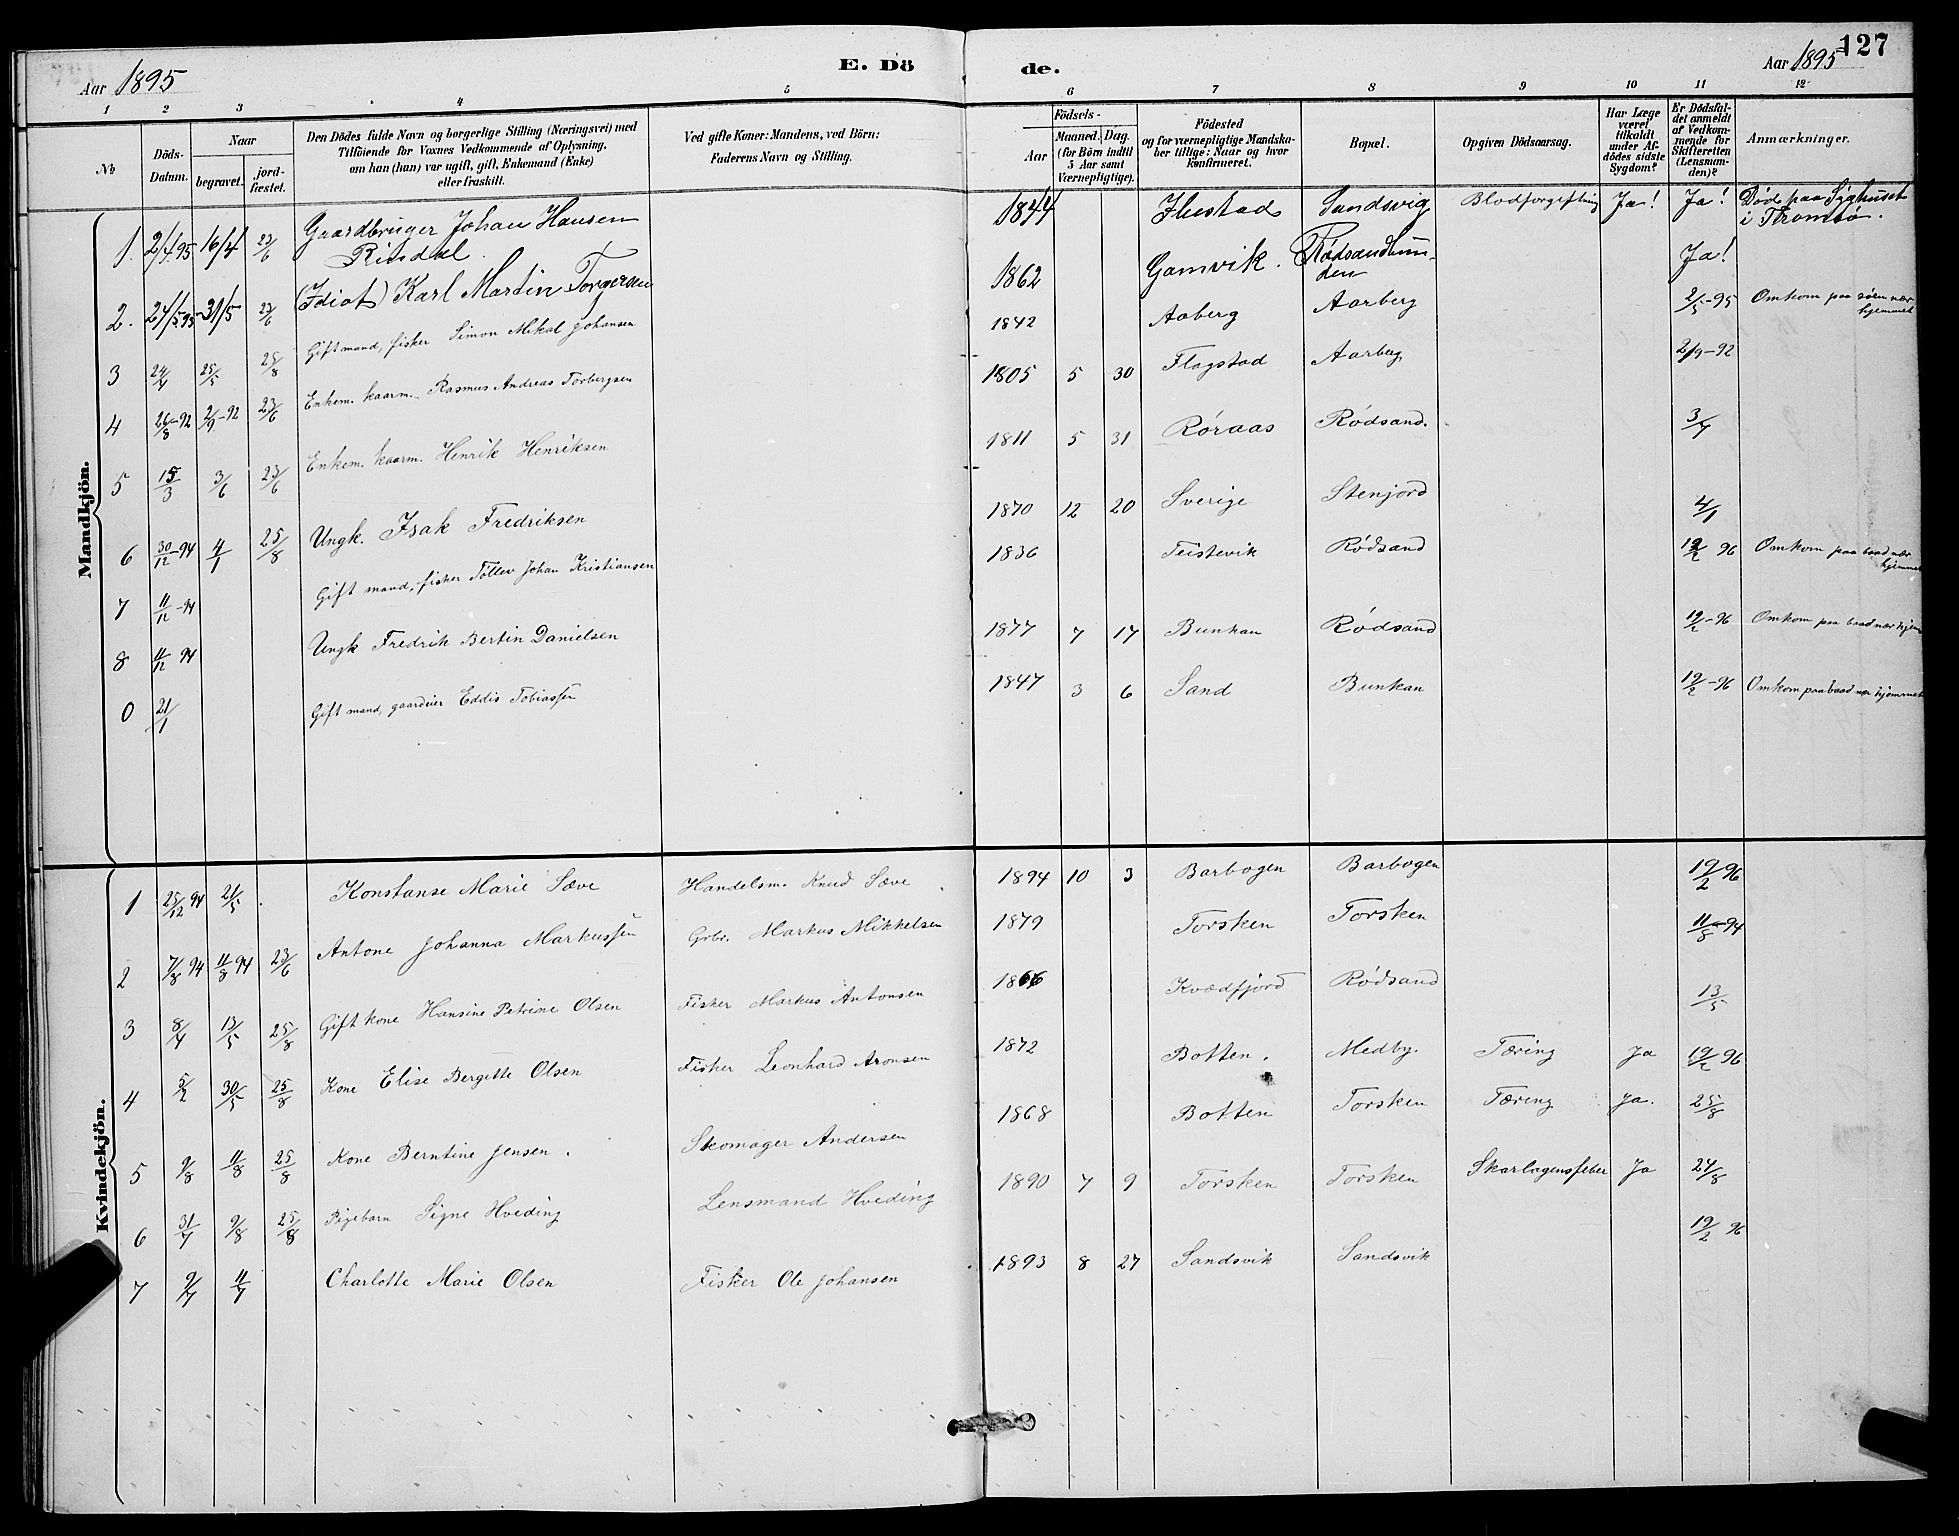 127
Aar 1895 E. Dö de. Aar 1895
1 2 3 4 5 6 7 8 9 10 11 12
No
Döds-Datum.
Naar
begravet. jord-fæstet.
Den Dödes fulde Navn og borgerlige Stilling (Næringsvei) med
Tilföiende for Voxnes Vedkommende af Oplysning,
om han (hun) var ugift, gift, Enkemand (Enke)
eller fraskilt.
Ved gifte Koner: Mandens, ved Börn:
Faderens Navn og Stilling.
Födsels-
Aar Maaned. Dag.
(for Börn indtil
5 Aar samt
Værnepligtige).
Födested
og for værnepligtige Mandska-
ber tillige: Naar og hvor
konfirmeret.
Bopæl.
Opgiven Dödsaarsag.
Har Læge
været
tilkaldt
under Af-
dödes sidste
Sygdom?
Er Dödsfal-
det anmeldt
af Vedkom-
mende for
Skifteretten
(Lensman-
den)?
Anmærkninger.
Mandkjön.
1. 2/4 95 16/4 23/6 Gaardbruger Johan Hansen Rindal. 1844 Sandsvig Blodforgiftning Ja! Ja! Död paa Syghuset i Tromsö.
2. 24/5 95 31/5 23/6 (Idiot) Karl Martin Torgersen 1862 Gamvik. Rødsandbunden Ja!
3 24/4 25/5 25/8 Gift mand, fisker Simon Mikal Johansen 1842 Aaberg Aarberg 2/5-95 Omkom paa söen nær hjemmet
4 26/8-92 2/9-92 23/6 Enkem. kaarm. Rasmus Andreas Torbergsen 1805 5 30 Flagstad 2/9-92
5 15/3 3/6 23/6 Enkem. kaarm. Henrik Henriksen 1811 5 31 Röraas Rödsand.
6 30/12-94 4/1 25/8 Ungk. Isak Fredriksen 1870 12 20 Sverige Stenjord 4/1
7 11/12-94 Gift mand, fisker Johan Kristiansen 1836 Teistevik Rödsand 19/2 96 Omkom paa baad nær hjemmet
8 11/12 94 Ungk Fredrik Bertin Danielsen 1877 7 17 Bunkan Rödsand 19/2-96 Omkom paa baad nær hjem
0 21/1 Gift mand, gaardeier Eddis Tobiassen 1847 3 6 Sand Bunkan 19/2-96 Omkom paa baad nær hjemmet
Kvindekjön.
1 25/12 94 21/5 Konstanse Marie Sæve Handelsm. Knud Sæve 1894 10 3 Barbogen Barbogen 19/2 96
2 7/8 94 11/8 94 23/6 Antone Johanna Markussen Grbr. Markus Mikkelsen 1879 Torsken Torsken 11/8-94
3 8/4 13/5 25/8 Gift kone Hansine Petrine Olsen Fisker Markus Antonsen Kvædfjord Rödsand 13/5
4 5/2 30/5 25/8 Kone Elise Bergitte Olsen Fisker Leonhard Aronsen 1872 Botten. Medby. Tæring Ja 19/2 96
5 9/8 11/8 25/8 Kone Berntine Jensen. Skomager Andersen 1868 Botten Torsken Tæring Ja. 25/8
6 31/7 9/8 25/8 Pigebarn Signe Hveding Lensmand Hveding 1890 7 9 Torsken Torsken Skarlagensfeber Ja 24/8
7 9/7 11/7 Charlotte Marie Olsen Fisker Ole Johansen 1893 8 27 Sandsvik Sandsvik 19/2 96